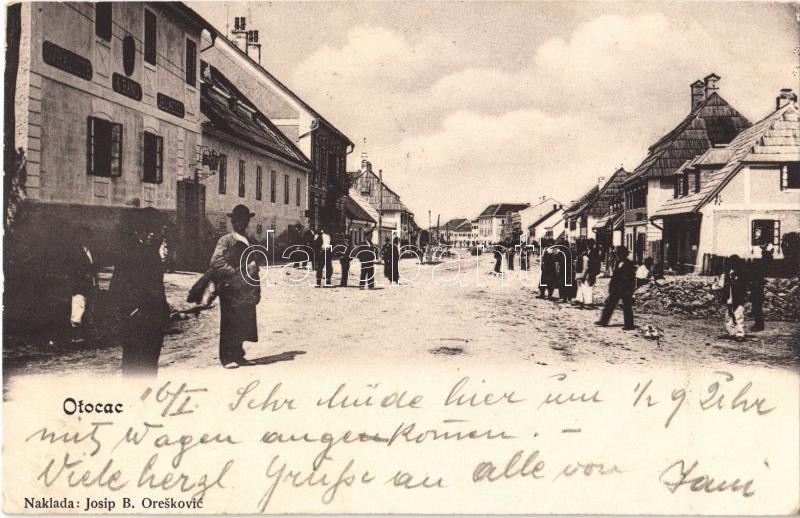 darabanth.com
Otocac 16/I Sehr Müde hier um 1/2 9 Uhr
mit Wagen angekomen. –
Viele herzl Grüße an alle von
Naklada: Josip B. Orešković